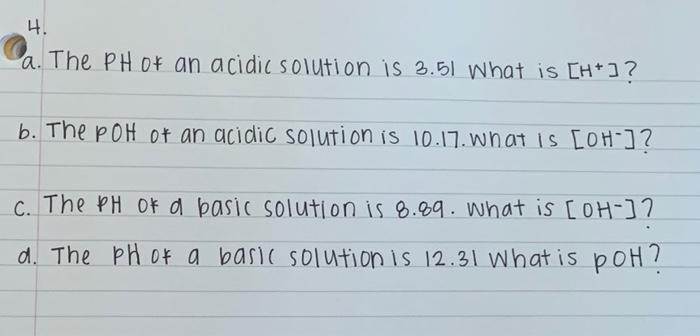 4.
a. The PH of an acidic solution is 3.51 What is [H⁺]?
b. The pOH of an acidic solution is 10.17. What is [OH⁻]?
c. The PH of a basic solution is 8.89. What is [OH⁻]?
d. The pH of a basic solution is 12.31 What is pOH?